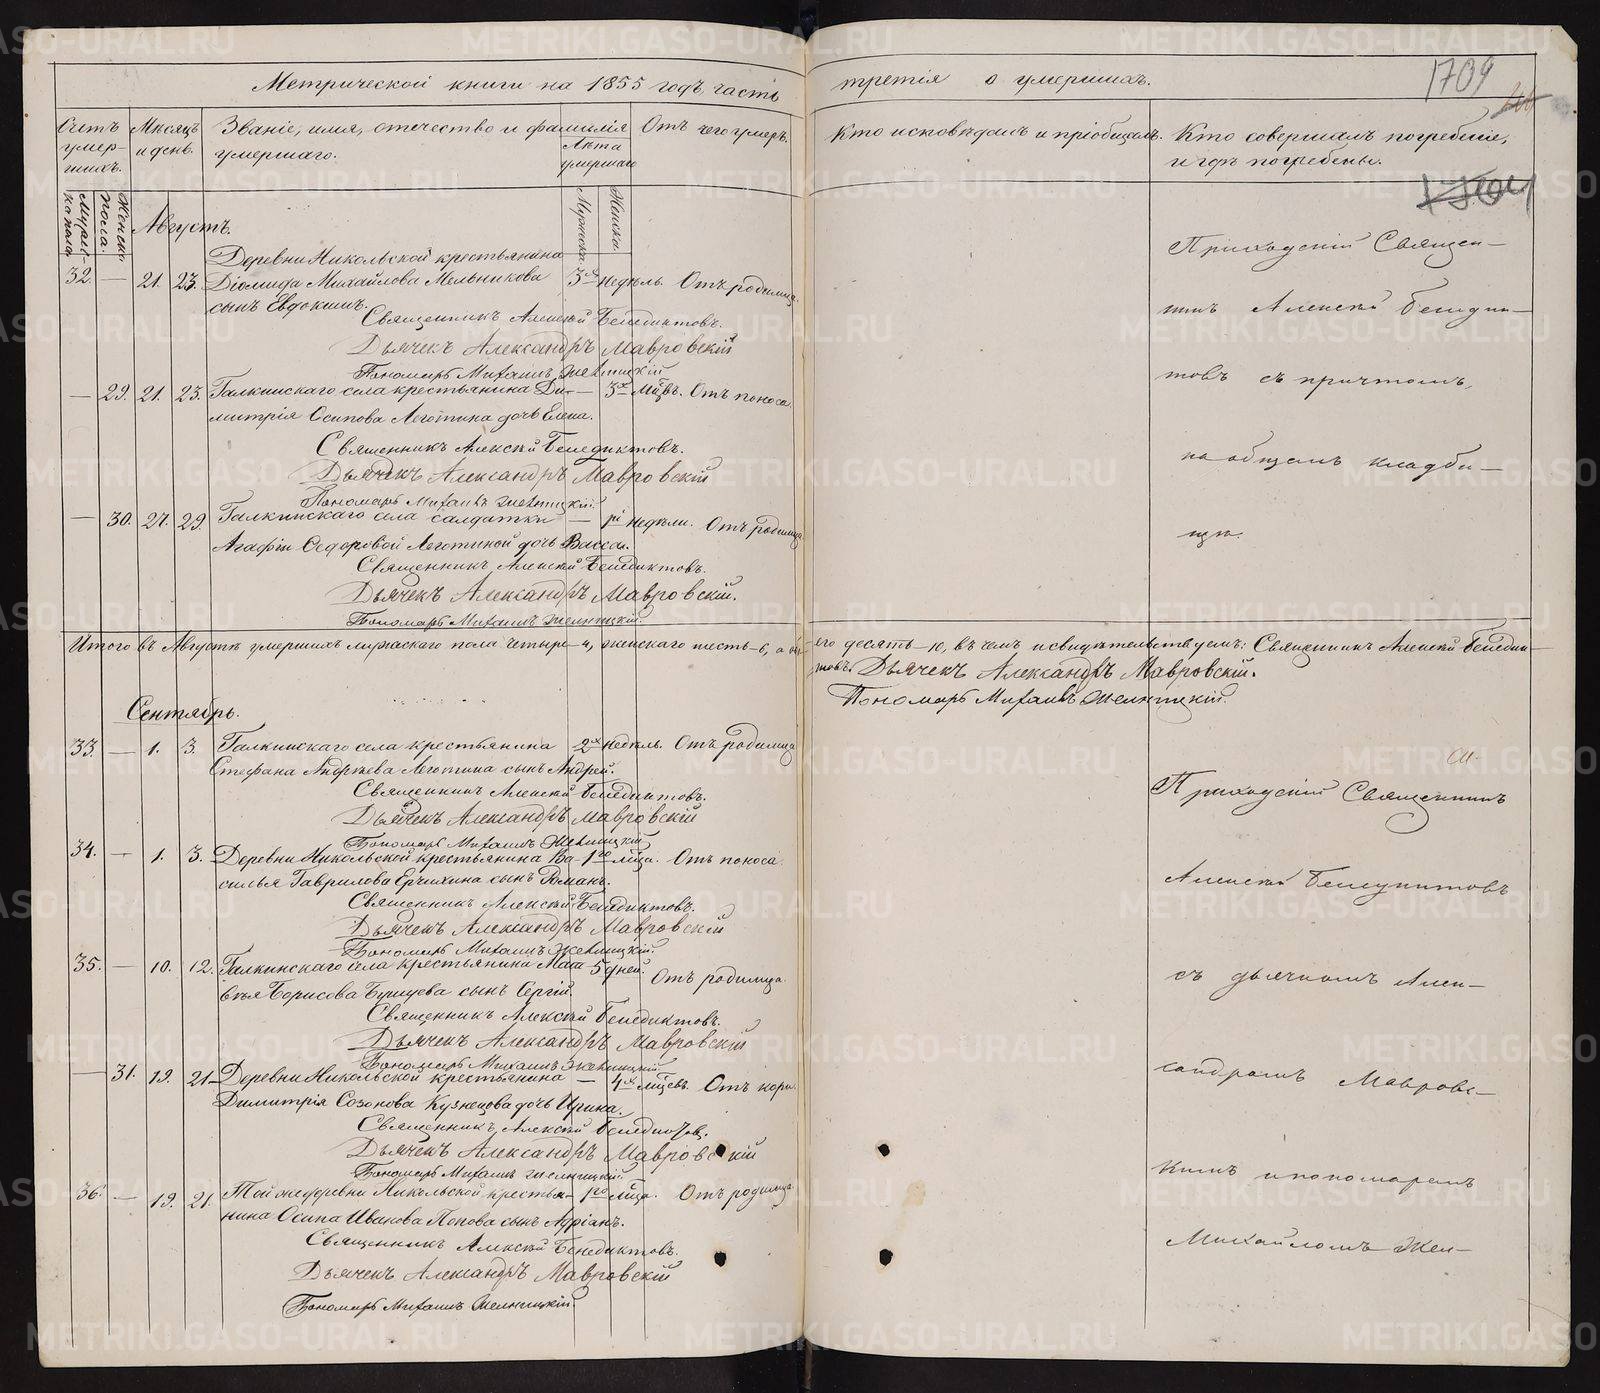 Метрической книги на 1855 годъ, часть третія о умершихъ.
1709
Счетъ умер-шихъ.
Мужеска пола.
Женска пола.
Мѣсяцъ и день.
Званіе, имя, отечество и фамилія умершаго.
Лѣта умершаго
Мужеска.
Женска.
Отъ чего умеръ.
Кто исповѣдалъ и пріобщалъ.
Кто совершалъ погребеніе, и гдѣ погребены.
Августъ.
Деревни Никольской крестьянина
32. — 21. 23. Діомида Михайлова Мельникова 3хъ недѣль. Отъ родимца.
сынъ Евдокимъ.
Священникъ Алексѣй Бенедиктовъ.
Дьячекъ Александръ Мавровскій
Пономарь Михаилъ Желницкій
— 29. 21. 23. Галкинскаго села крестьянина Ди- — 3х мцвъ. Отъ поноса.
митрія Осипова Леготина дочь Елена.
Священникъ Алексѣй Бенедиктовъ.
Дьячекъ Александръ Мавровскій
Пономарь Михаилъ Желницкій.
— 30. 27. 29. Галкинскаго села салдатки — недѣли. Отъ родимца
Агафіи Ѳедоровой Леготиной дочь Васса.
Священникъ Алексѣй Бенедиктовъ.
Дьячекъ Александръ Мавровскій.
Пономарь Михаилъ Желницкій.
Приходскій Священ-
никъ Алексѣй Бенедик-
товъ съ причтомъ,
на общемъ кладби-
щѣ.
Итого въ Августѣ умершихъ мужескаго пола четыре — 4, женскаго шесть — 6, а все-
го десять — 10, въ чемъ и свидѣтельствуемъ: Священникъ Алексѣй Бенедик-
товъ. Дьячекъ Александръ Мавровскій.
Пономарь Михаилъ Желницкій.
Сентябрь.
33. — 1. 3. Галкинскаго села крестьянина 2х недѣль. Отъ родимца
Стефана Андрѣева Леготина сынъ Андрей.
Священникъ Алексѣй Бенедиктовъ.
Дьячекъ Александръ Мавровскій
Пономарь Михаилъ Желницкій
34. — 1. 3. Деревни Никольской крестьянина Ва- 1го мца. Отъ поноса.
силья Гаврилова Ерчихина сынъ Романъ.
Священникъ Алексѣй Бенедиктовъ.
Дьячекъ Александръ Мавровскій
Пономарь Михаилъ Желницкій.
35. — 10. 12. Галкинскаго села крестьянина Мат- 5 дней. Отъ родимца.
вѣя Борисова сынъ Сергій.
Священникъ Алексѣй Бенедиктовъ.
Дьячекъ Александръ Мавровскій
Пономарь Михаилъ Желницкій
— 31. 19. 21. Деревни Никольской крестьянина — 4х мцевъ. Отъ кори.
Димитрія Созонова Кузнецова дочь Ирина.
Священникъ Алексѣй Бенедиктовъ.
Дьячекъ Александръ Мавровскій
Пономарь Михаилъ Желницкій.
36. — 19. 21. Той же деревни Никольской крестья- 1го мца. Отъ родимца.
нина Осипа Иванова Попова сынъ Адріанъ.
Священникъ Алексѣй Бенедиктовъ.
Дьячекъ Александръ Мавровскій
Пономарь Михаилъ Желницкій.
Приходскій Священникъ
Алексѣй Бенедиктовъ
съ дьячкомъ Алек-
сандромъ Мавровс-
кимъ и пономаремъ
Михайломъ Жел-
METRIKI.GASO-URAL.RU